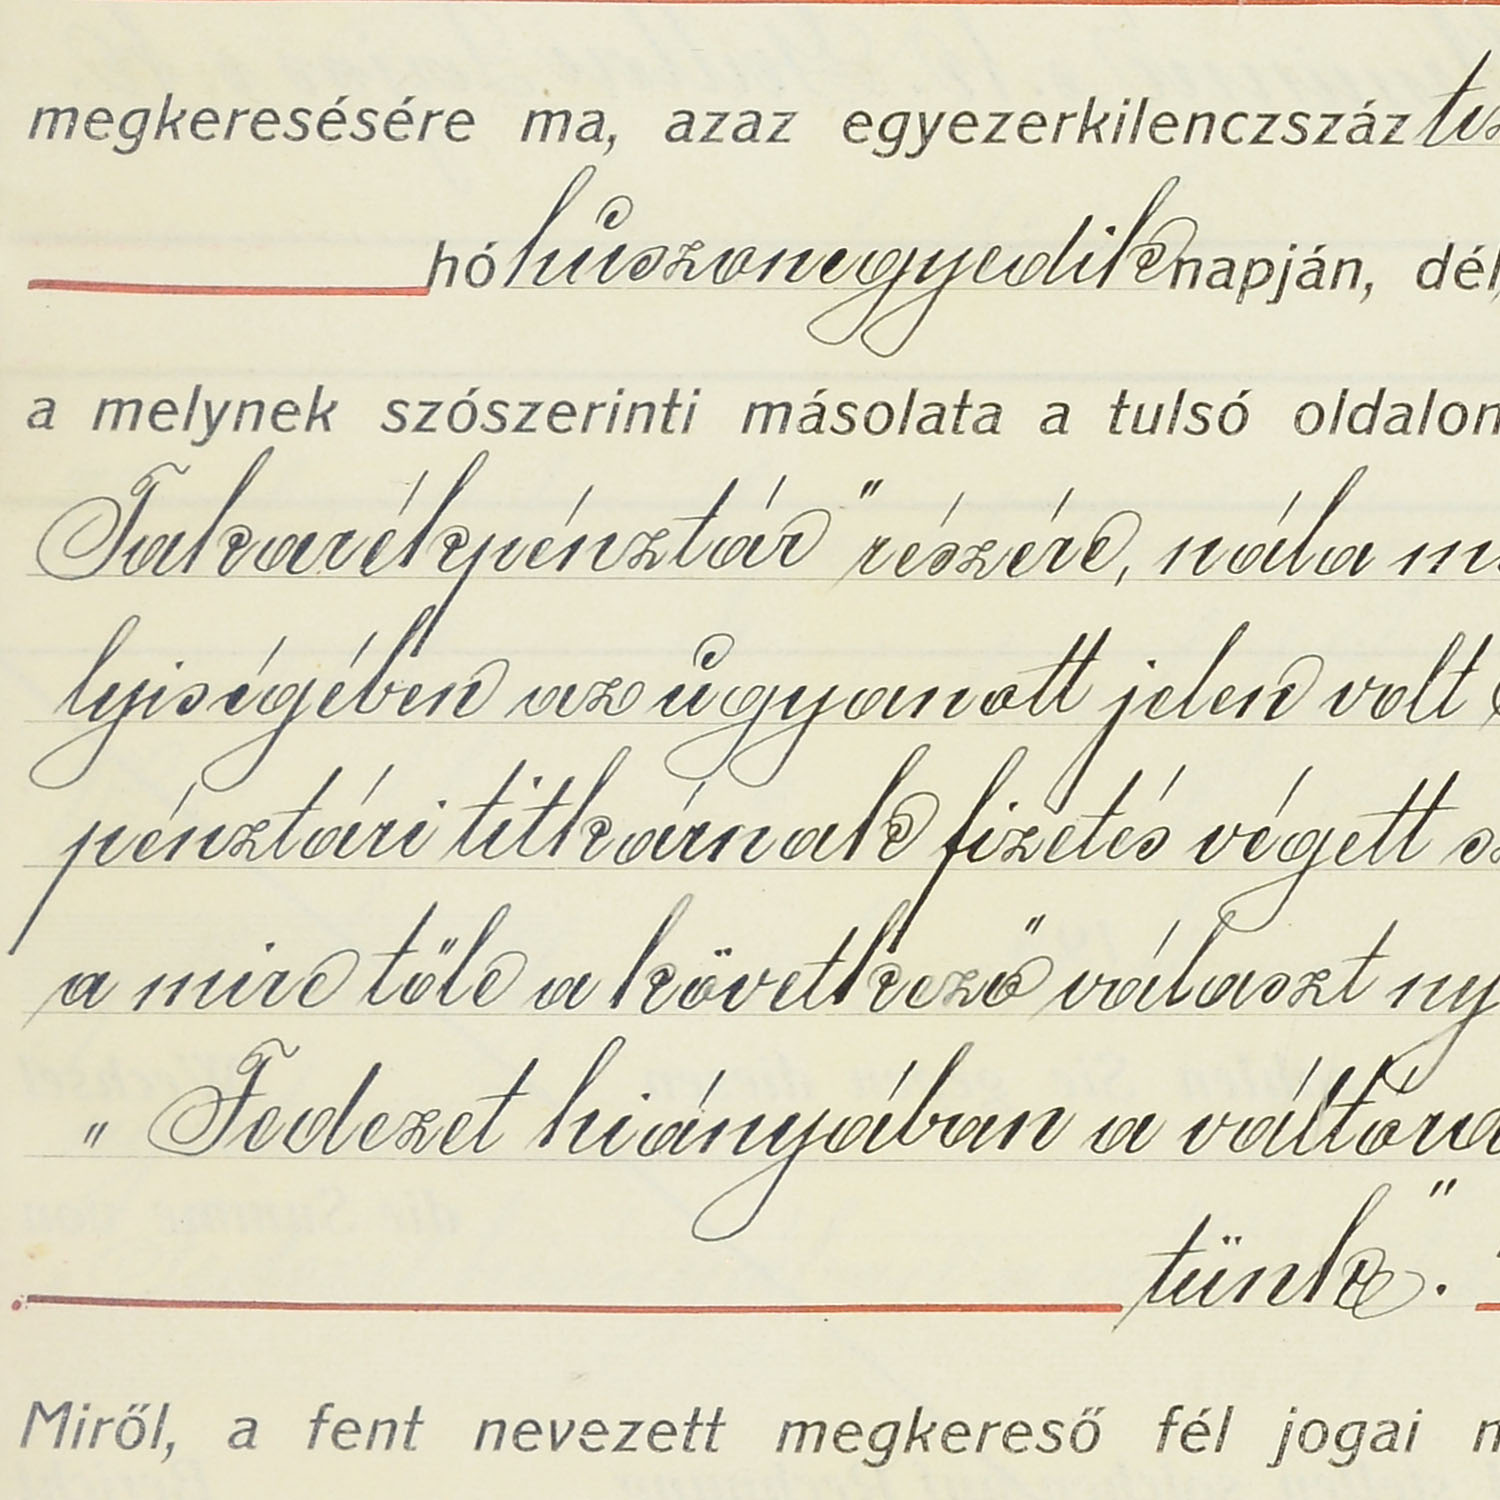 megkeresésére ma, azaz egyezerkilenczszáz
hó huszonegyedik napján, dél
a melynek szószerinti másolata a tulsó oldalon
Takarékpénztár" részére, nála
lyiségében az ugyanott jelen volt
pénztári titkárnak fizetés végett
a mire tőle a következő választ ny
"Fedezet hiányában a váltóra
tünk."
Miről, a fent nevezett megkereső fél jogai